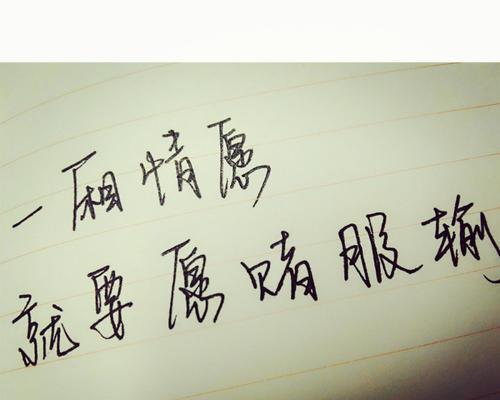 一厢情愿
就要愿赌服输